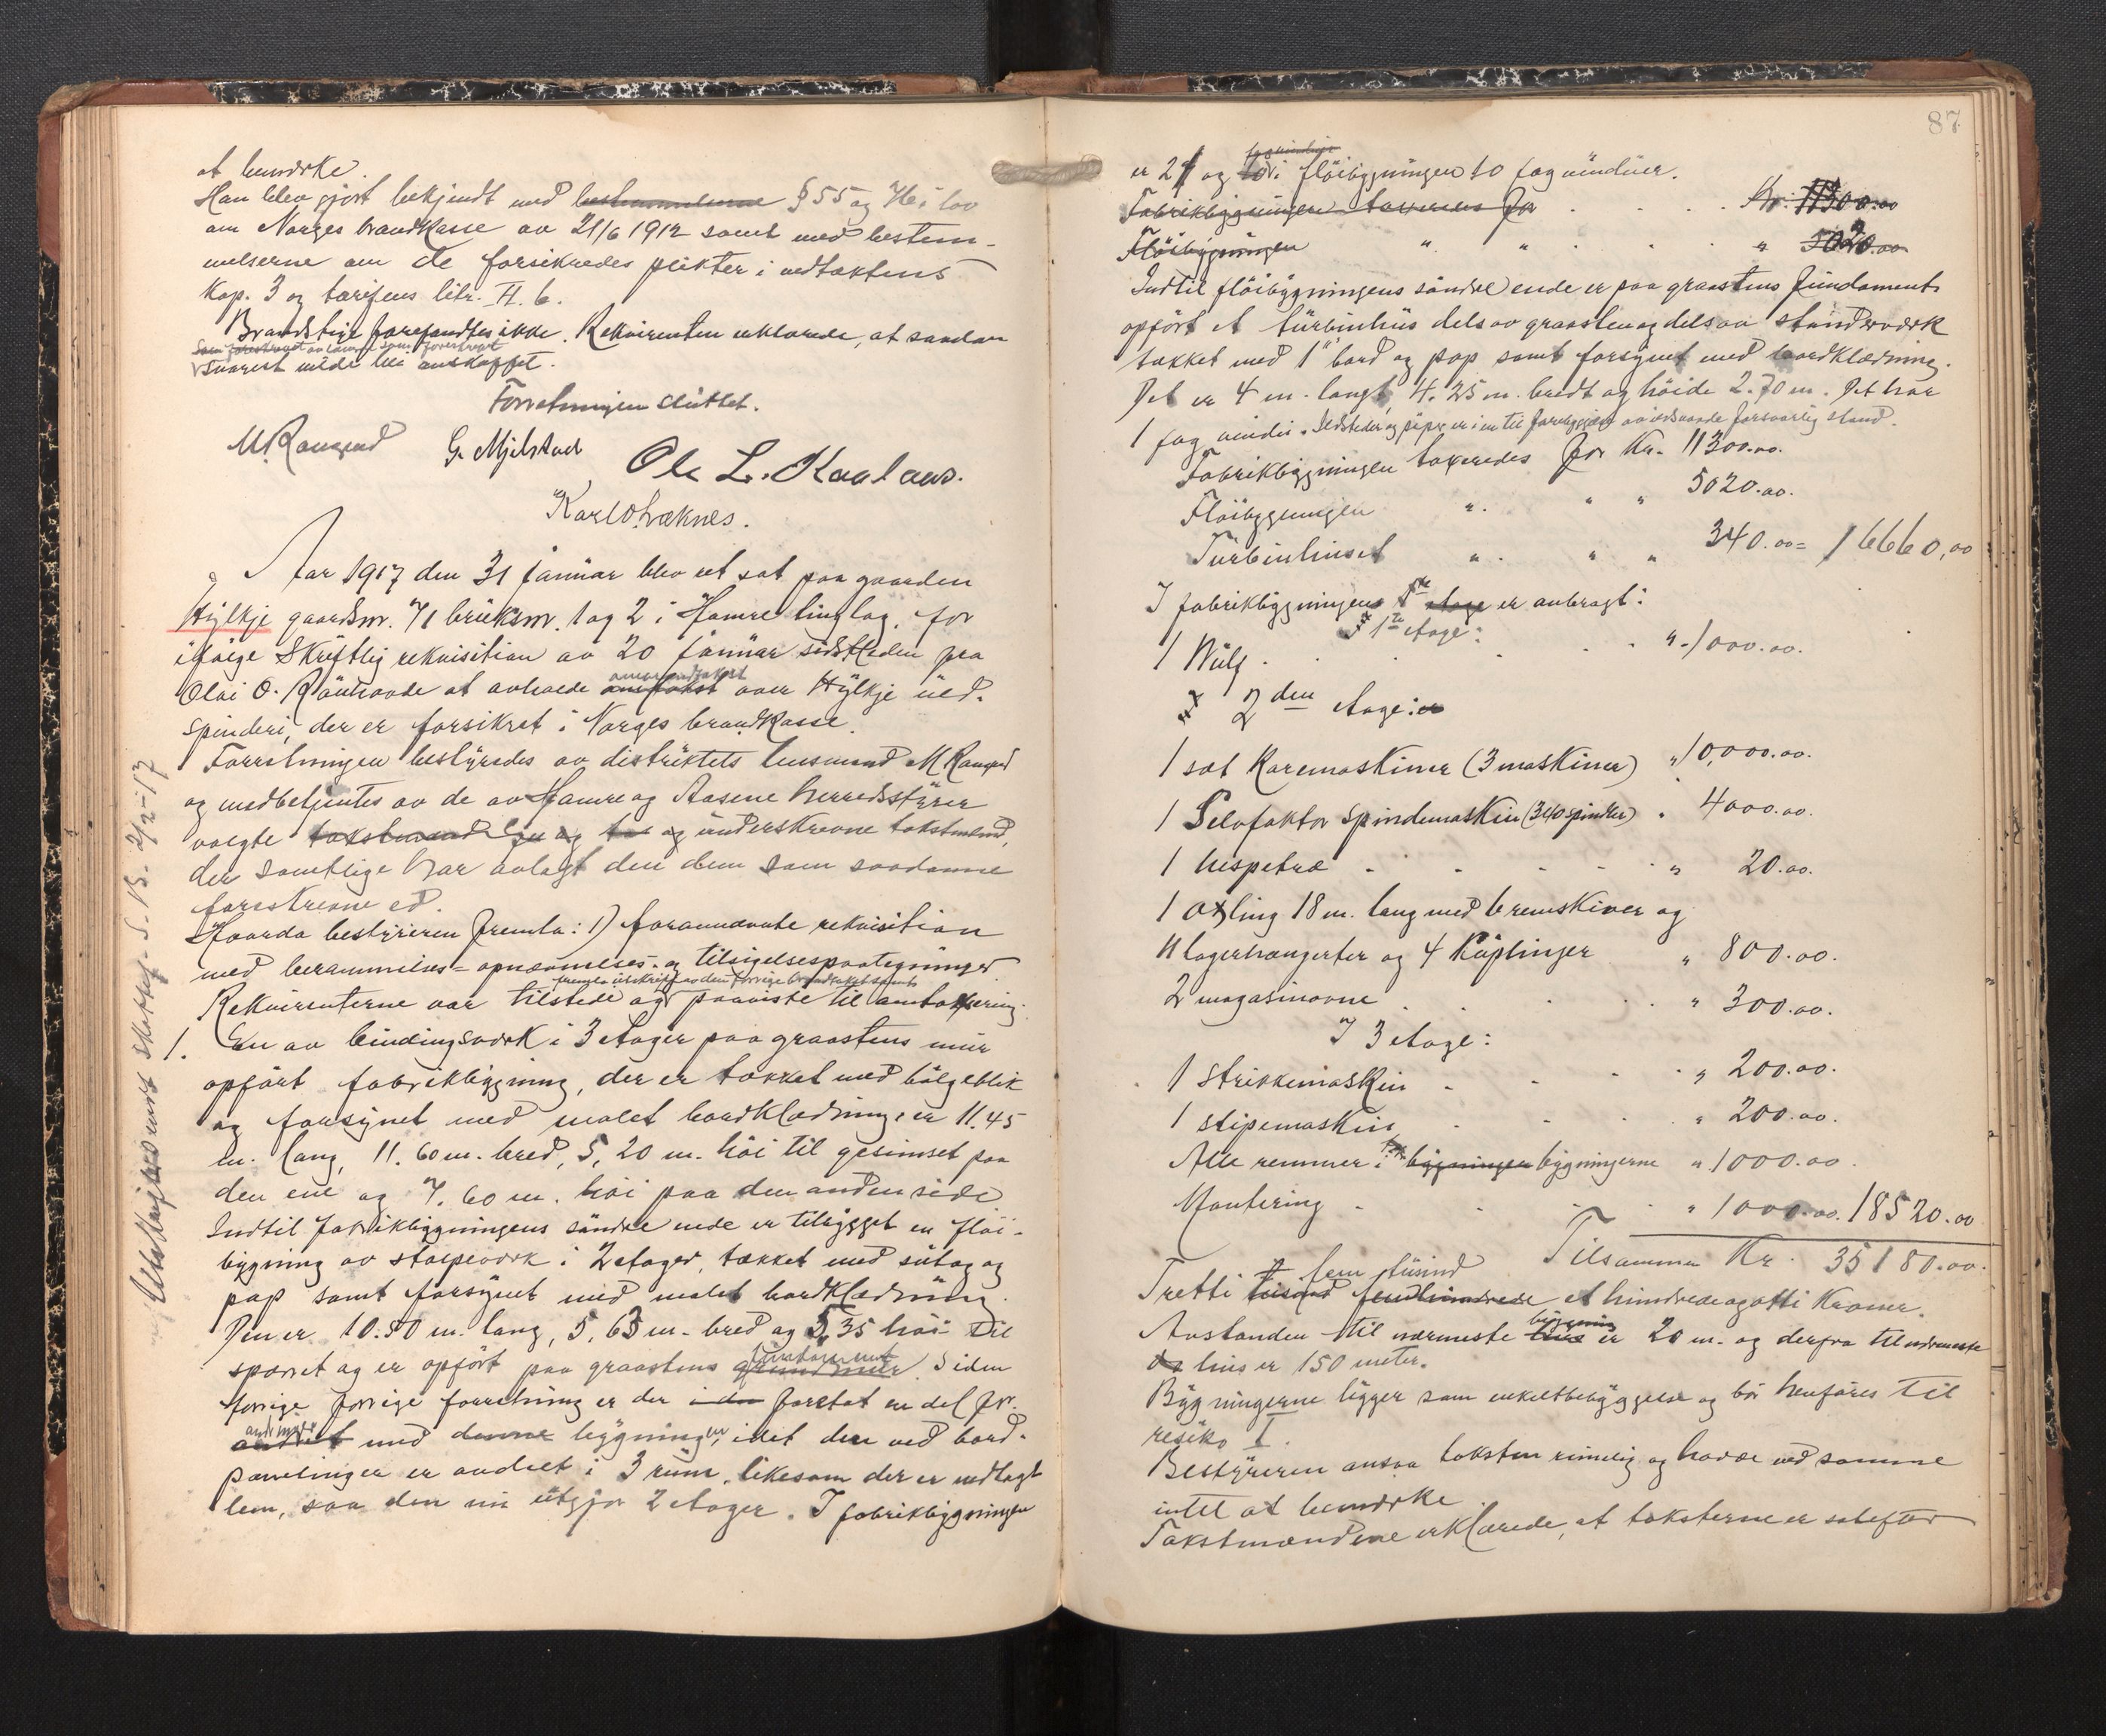 at bemærke.
Han blev gjort bekjendt med bestemmelserne § 55 og i lov
om Norges brandkasse av 21/6 1912 samt med bestem-
melserne om de forsikredes plikter i vedtæktens
Kap. 3 og tarifens litr. H. b.
Brandstige forefandtes ikke. Rekvirenten erklærede, at saadan
snarest vilde bli anskaffet.
Forretningen sluttet.
M. Ramsrud G. Mjelstad Ole L. Kaalaas.
Karl O. Læknes.
Aar 1917 den 31 januar blev ret sat paa gaarden
Hylkje gaardsnr. 71 bruksnr. 1 og 2 i Hamre tinglag, for
ifølge skriftlig rekvisition av 20 januar sidstleden fra
Olai O. Rønhovde at avholde omtakst over Hylkje uld-
omtakst
spinderi, der er forsikret i Norges brandkasse.
Forretningen bestyredes av distriktets lensmand M Ramsrud
og medbetjentes av de av Hamre og Aasene herredsstyrer
valgte takstmænd og underskrevne takstmænd,
der samtlige har avlagt den dem som saadanne
foreskrevne ed.
Hvorda bestyreren fremla: 1) forannævnte rekvisition
med berammelses- opnævnelses- og tilsigelsespaategninger
fremla utskrift av den forrige brandtakst samt
Rekvirenterne var tilstede og paaviste til omtaxering
1. En av bindingsværk i 3 etager paa graastens mur
opført fabrikbygning, der er tækket med bølgeblik
og forsynet med malet bordklædning, er 11.45
m. lang, 11.60 m. bred, 5,20 m. høi til gesimset paa
den ene og 7.60 m. høi paa den anden side
Indtil fabrikbygningens søndre ende er tilbygget en fløi-
bygning av stolpeværk i 2 etager, tækket med sutag og
pap samt forsynet med malet bordklædning.
Den er 10.50 m. lang, 5,63 m. bred og 5,35 høi til
sparret og er opført paa graastens grundmur. Siden
fundament
forrige forrige forretning er der i den foretat en del for-
andringer
andret med denne bygningen, idet den ved bord-
panelinger er andelt i 3 rum, likesom der er nedlagt
lem, saa den nu utgjør 2 etager. I fabrikbygningen
2/2-17
87
er 24 og i fløibygningen 10 fag vinduer.
Fabrikbygningen taxeredes for Kr. 11300.00
Fløibygningen " " " 5020.00
Indtil fløibygningens søndre ende er paa graastens fundament
opført et turbinhus dels av graasten og dels av stænderværk
tækket med 1" bord og pap samt forsynet med bordklædning.
Det er 4 m. langt, 4.25 m. bredt og høide 2.70 m. Det har
1 fag vindu. Ildsteder og piper er i en til forebyggelse av ildsvaade forsvarlig stand.
Fabrikbygningen taxeredes for Kr. 11300.00.
Fløibygningen " " " 5020.00.
Turbinhuset " " " 340.00 = 16660,00
I fabrikbygningens 1ste etage er anbragt:
I 1ste etage:
1 Wulf " 1000.00.
I 2den etage: er
1 sæt Karemaskiner (3 maskiner) " 10,000.00.
1 Selvfaktor Spindemaskin (340 spindler) " 4000.00.
1 hespetræ " 20.00.
1 Axling 18 m. lang med bremskiver og
11 lagerhængerter og 4 Kuplinger " 800.00.
2 magasinovne " 300.00.
I 3 etage:
1 strikkemaskin " 200.00.
1 stipemaskin " 200.00.
Alle remmer i bygningen bygningerne " 1000.00.
Montering " 1000.00. 18520.00
Tilsammen Kr. 35180.00.
fem tusind
Tretti tusind femhundrede et hundrede og otti Kroner.
bygning
Avstanden til nærmeste hus er 20 m. og derfra til nærmeste
hus er 150 meter.
Bygningerne ligger som enkeltbebyggelse og bør henføres til
resiko I.
Bestyreren ansaa taksten rimelig og havde ved samme
intet at bemærke.
Takstmændene erklærede, at taksterne er sat efter